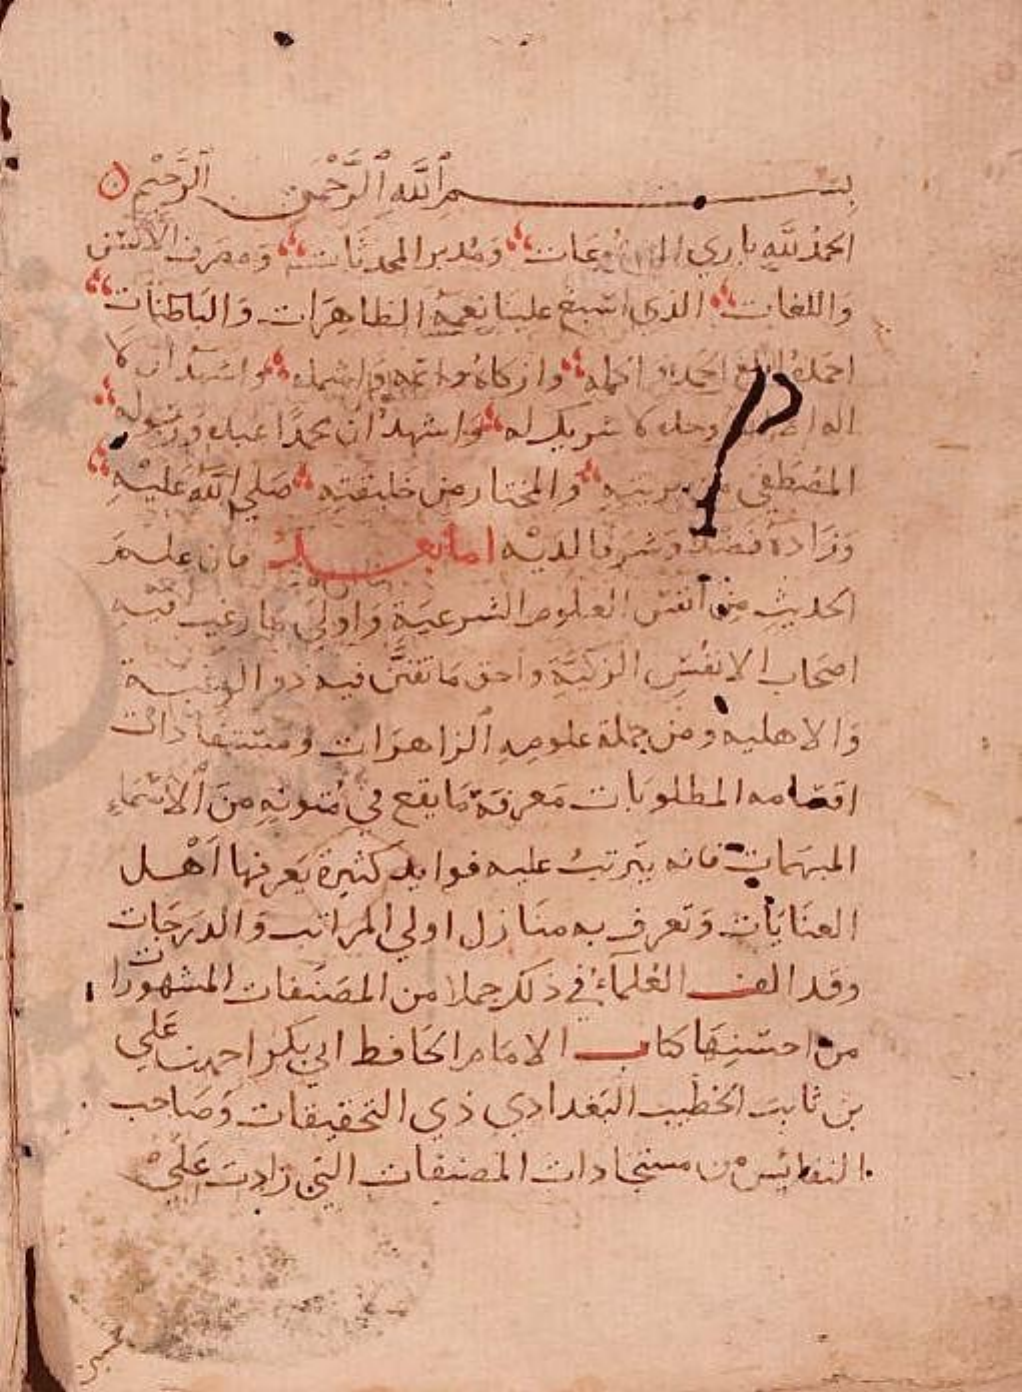 بسم ٱلله ٱلرَّحْمن ٱلرَّحيْم
الحمدُ للَّهِ باري المصنوعات وَمُدبر المحدثَات وَمصرف الألسن
واللغات الذي اسبغ علينا نعمهُ الظاهِرَات وَالبَاطنَات
احمدهُ ابلغ الحمد واكمله وازكاهُ واتمه واشمله واشهد ان لا
اله الا الله وحده لا شريك له وَاشهدُ ان محمدًا عبده وَرَسُوله
المصْطَفي من بريته والمختار من خليقتِه صَلي اللَّهُ عَليْهِ
وَزَادهُ فَضْلا وَشرَفا لدَيْه اما بَعْد فان علم
الحديثِ مِن أنفس العلوم الشرعيَة وَاولي ما رغب فيْه
اصحَاب الانفُسِ الزكيَّةِ واحق مَا تفنَّن فيه ذو الرغبة
وَالاهليه ومن جملة علومِهِ ٱلزاهرَات ومستفادات
اقسامه المطلوبَات مَعرفة مَا يقع في مُتونهِ منَ ٱلأسْمَاءِ
المبهَمات فانه يترتبُ عليه فوايد كثيرة يَعرفها أهْل
العنايَات وَتعرف به منَازل اولي المراتب وَالدرَجَات
وقد الفت العُلمَآءُ في ذلك جملا من المصَنفات المشهورات
من احسَنِهَا كتاب الامَام الحَافظ ابي بكر احمد بن عَلي
بن ثابت الخطيب البَغدَادي ذي التحقيقات وَصَاحب
النفايس من مستجادات المصنفات التي زادت عَليْ